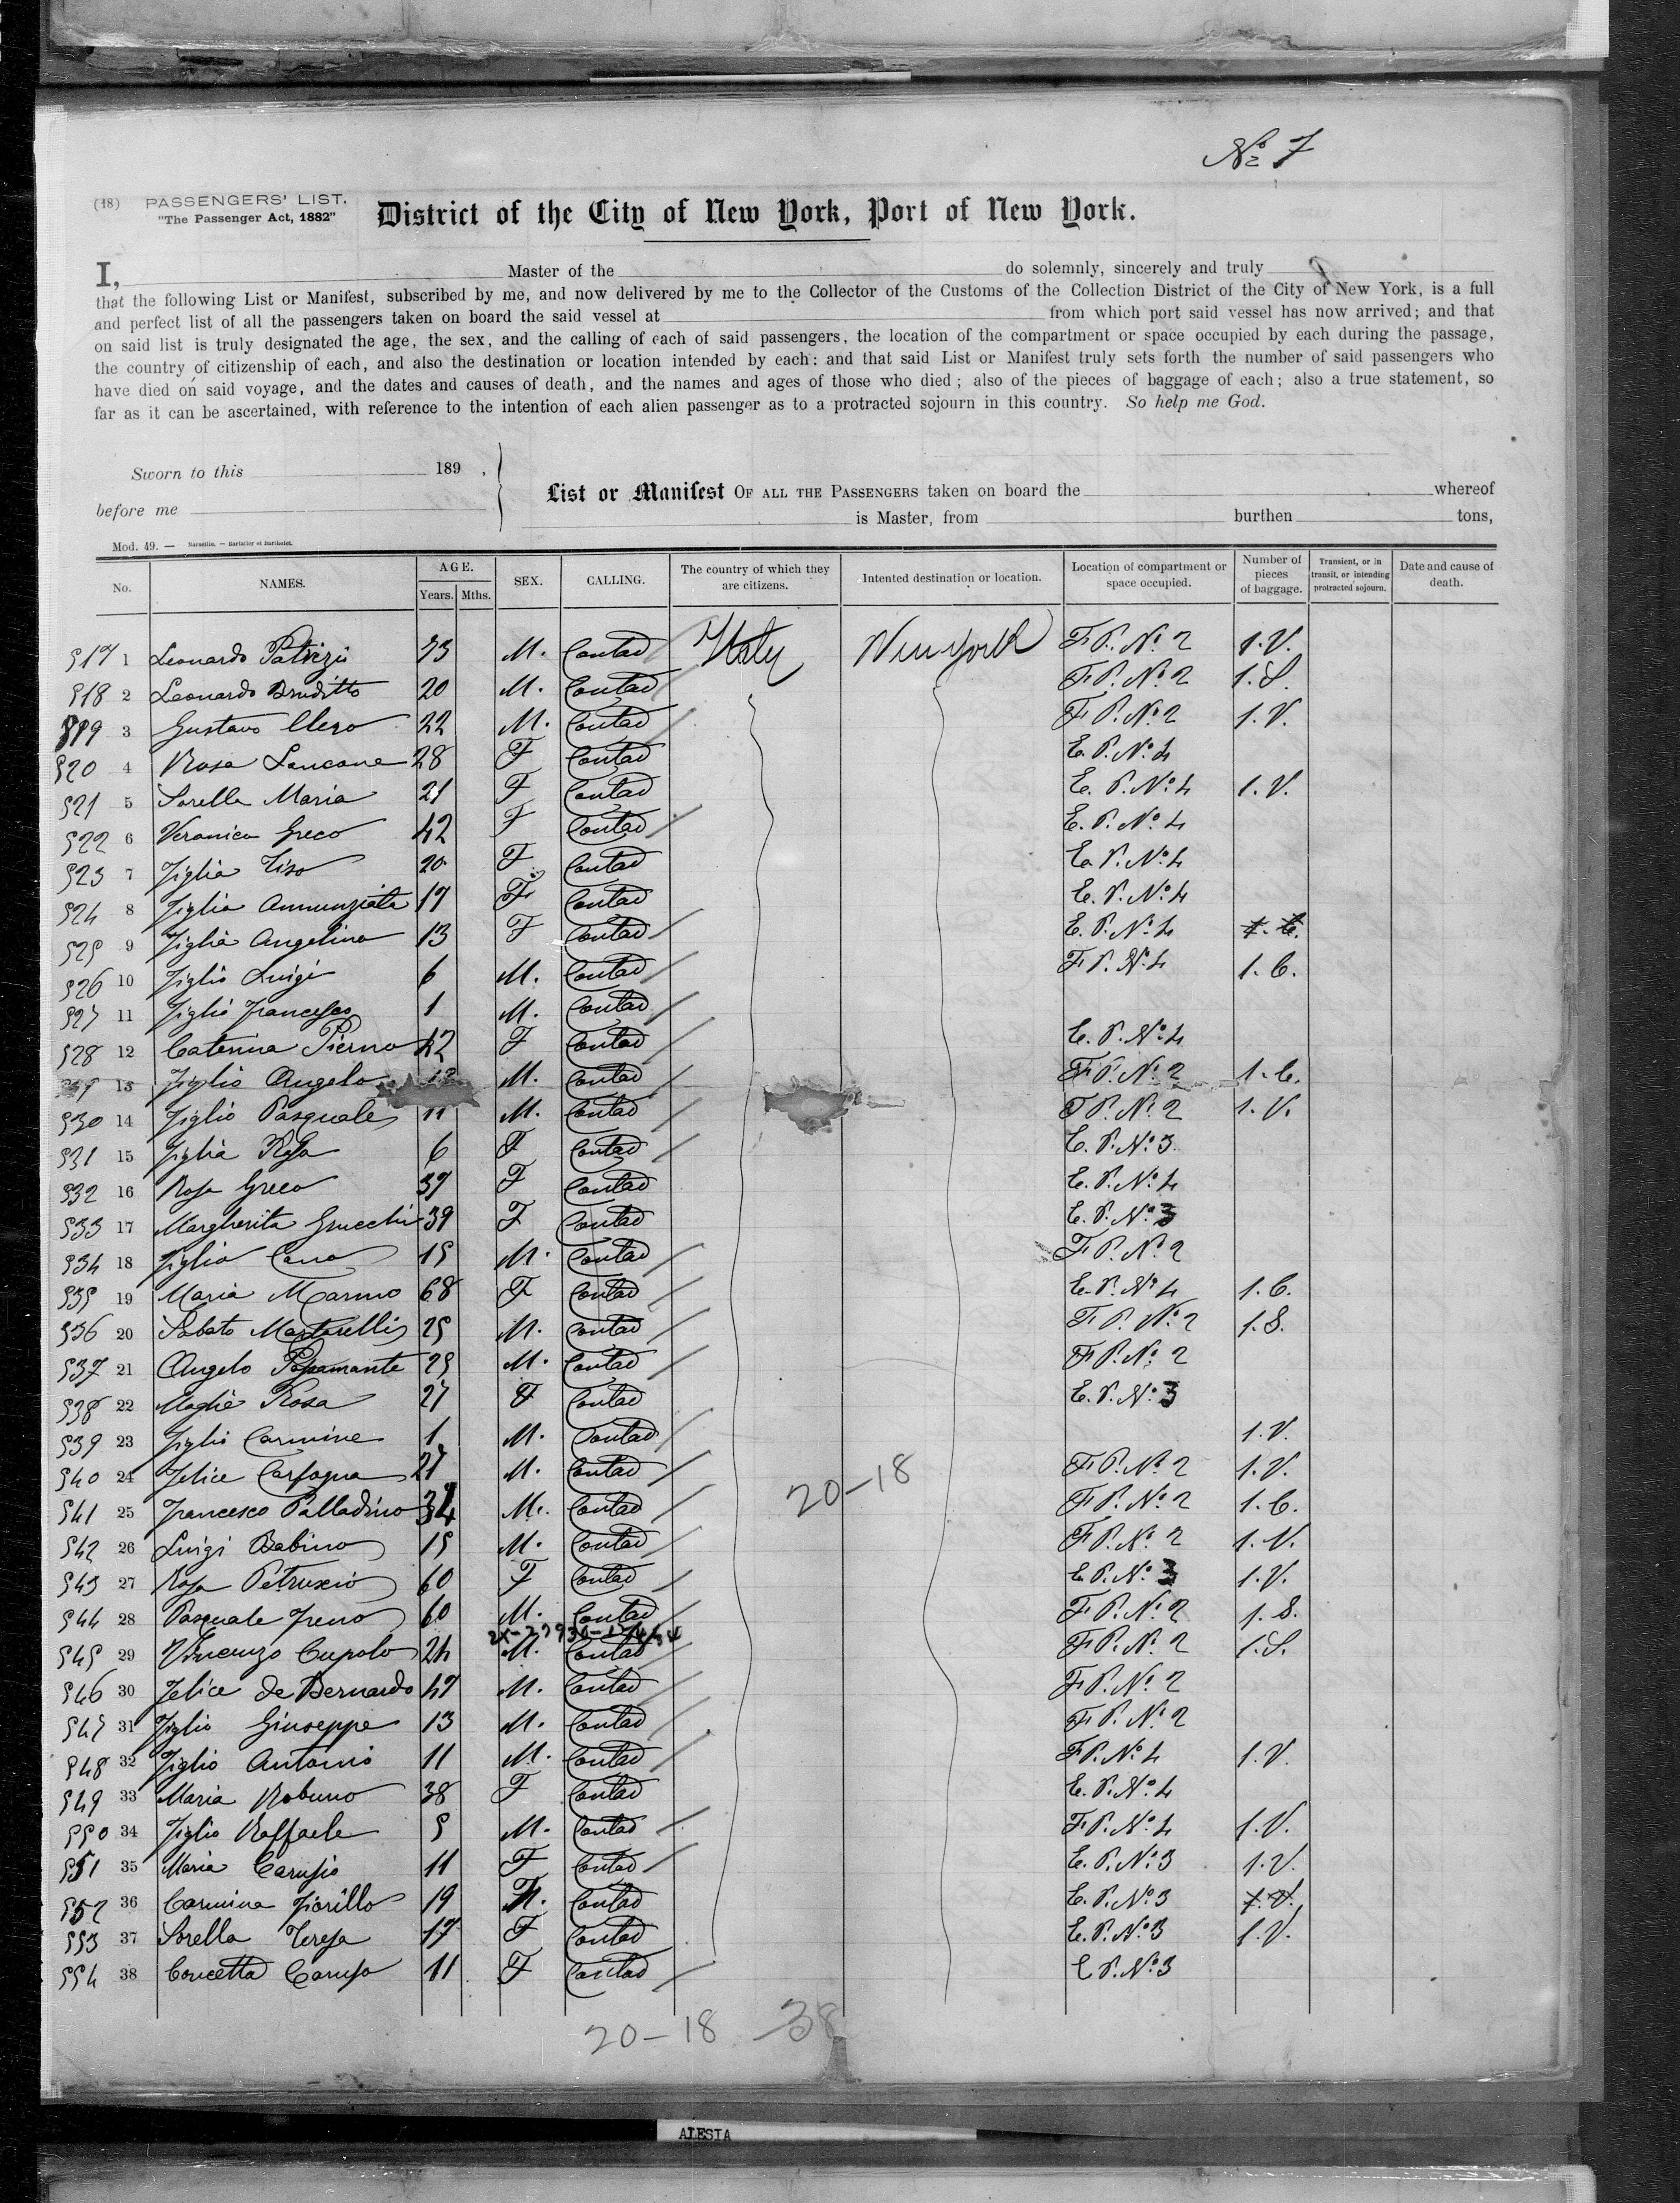 Nº 7
(18) PASSENGERS' LIST.
"The Passenger Act, 1882"
District of the City of New York, Port of New York.
I, Master of the do solemnly, sincerely and truly
that the following List or Manifest, subscribed by me, and now delivered by me to the Collector of the Customs of the Collection District of the City of New York, is a full
and perfect list of all the passengers taken on board the said vessel at from which port said vessel has now arrived; and that
on said list is truly designated the age, the sex, and the calling of each of said passengers, the location of the compartment or space occupied by each during the passage,
the country of citizenship of each, and also the destination or location intended by each: and that said List or Manifest truly sets forth the number of said passengers who
have died on said voyage, and the dates and causes of death, and the names and ages of those who died; also of the pieces of baggage of each; also a true statement, so
far as it can be ascertained, with reference to the intention of each alien passenger as to a protracted sojourn in this country. So help me God.
Sworn to this 189 ,
before me
List or Manifest OF ALL THE PASSENGERS taken on board the whereof
is Master, from burthen tons,
Mod. 49. — Marseille. — Barlatier et Barthelet.
No. NAMES. AGE. Years. Mths. SEX. CALLING. The country of which they are citizens. Intented destination or location. Location of compartment or space occupied. Number of pieces of baggage. Transient, or in transit, or intending protracted sojourn. Date and cause of death.
517 1 Leonardo Patrizio 23 M. Contad Italy New York F P. Nº 2 1. V.
518 2 Leonardo 20 M. Contad F P. Nº 2 1. S.
519 3 Gustavo Clero 22 M. Contad F P. Nº 2 1. V.
520 4 Rosa Lancone 28 F Contad E. P. Nº 4
521 5 Sorella Maria 21 F Contad E. P. Nº 4 1. V.
522 6 Veronica Greco 42 F Contad E. P. Nº 4
523 7 Figlia Tisa 20 F Contad E. P. Nº 4
524 8 Figlia Annunziata 17 F Contad E. P. Nº 4
525 9 Figlia Angelina 13 F Contad E. P. Nº 4 1. C.
526 10 Figlio Luigi 6 M. Contad F P. Nº 4 1. C.
527 11 Figlio Francesco 1 M. Contad
528 12 Caterina Pierno 42 F Contad E. P. Nº 4
13 Figlio Angelo M. Contad F P. Nº 2 1. C.
530 14 Figlio Pasquale 11 M. Contad F P. Nº 2 1. V.
531 15 Figlia Rosa 6 F Contad E. P. Nº 3
532 16 Rosa Greco 37 F Contad E. P. Nº 4
533 17 Margherita Grucchi 39 F Contad E. P. Nº 3
534 18 Figlio 15 M. Contad F P. Nº 2
535 19 Maria Marino 68 F Contad E. P. Nº 4 1. C.
536 20 Sabato Martorelli 25 M. Contad F P. Nº 2 1. S.
537 21 Angelo 25 M. Contad F P. Nº 2
538 22 Moglie Rosa 27 F Contad E. P. Nº 3
539 23 Figlio Carmine 1 M. Contad 1. V.
540 24 Felice Carfagna 27 M. Contad F P. Nº 2 1. V.
20-18
541 25 Francesco Palladino 34 M. Contad F P. Nº 2 1. C.
542 26 Luigi Babino 15 M. Contad F P. Nº 2 1. V.
543 27 Rosa Petruscio 60 F Contad E P. Nº 3 1. V.
544 28 Pasquale Freno 60 M. Contad F P. Nº 2 1. S.
545 29 Vincenzo Cupolo 24 M. Contad F P. Nº 2 1. S.
546 30 Felice de Bernardo 47 M. Contad F P. Nº 2
547 31 Figlio Giuseppe 13 M. Contad F P. Nº 2
548 32 Figlio Antonio 11 M. Contad F P. Nº 4 1. V.
549 33 Maria Robuno 38 F Contad E. P. Nº 4
550 34 Figlio Raffaele 5 M. Contad F P. Nº 4 1. V.
551 35 Maria Carusio 11 F Contad E. P. Nº 3 1. V.
552 36 Carmina Fiorillo 19 F. Contad E. P. Nº 3 1. V.
553 37 Sorella Teresa 17 F Contad E. P. Nº 3 1. V.
554 38 Concetta Caruso 11 F Contad E P. Nº 3
20-18 -38
ALESIA